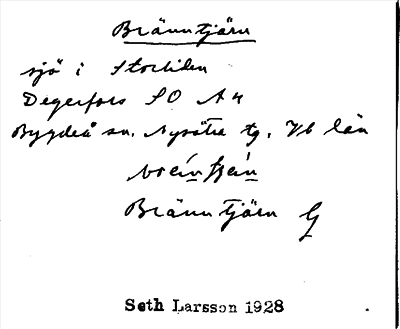 Bränntjärn
sjö i Storliden
Degerfors SO
Bygdeå sn. Nysätra tg. Vb län
Bränntjärn G
Seth Larsson 1928